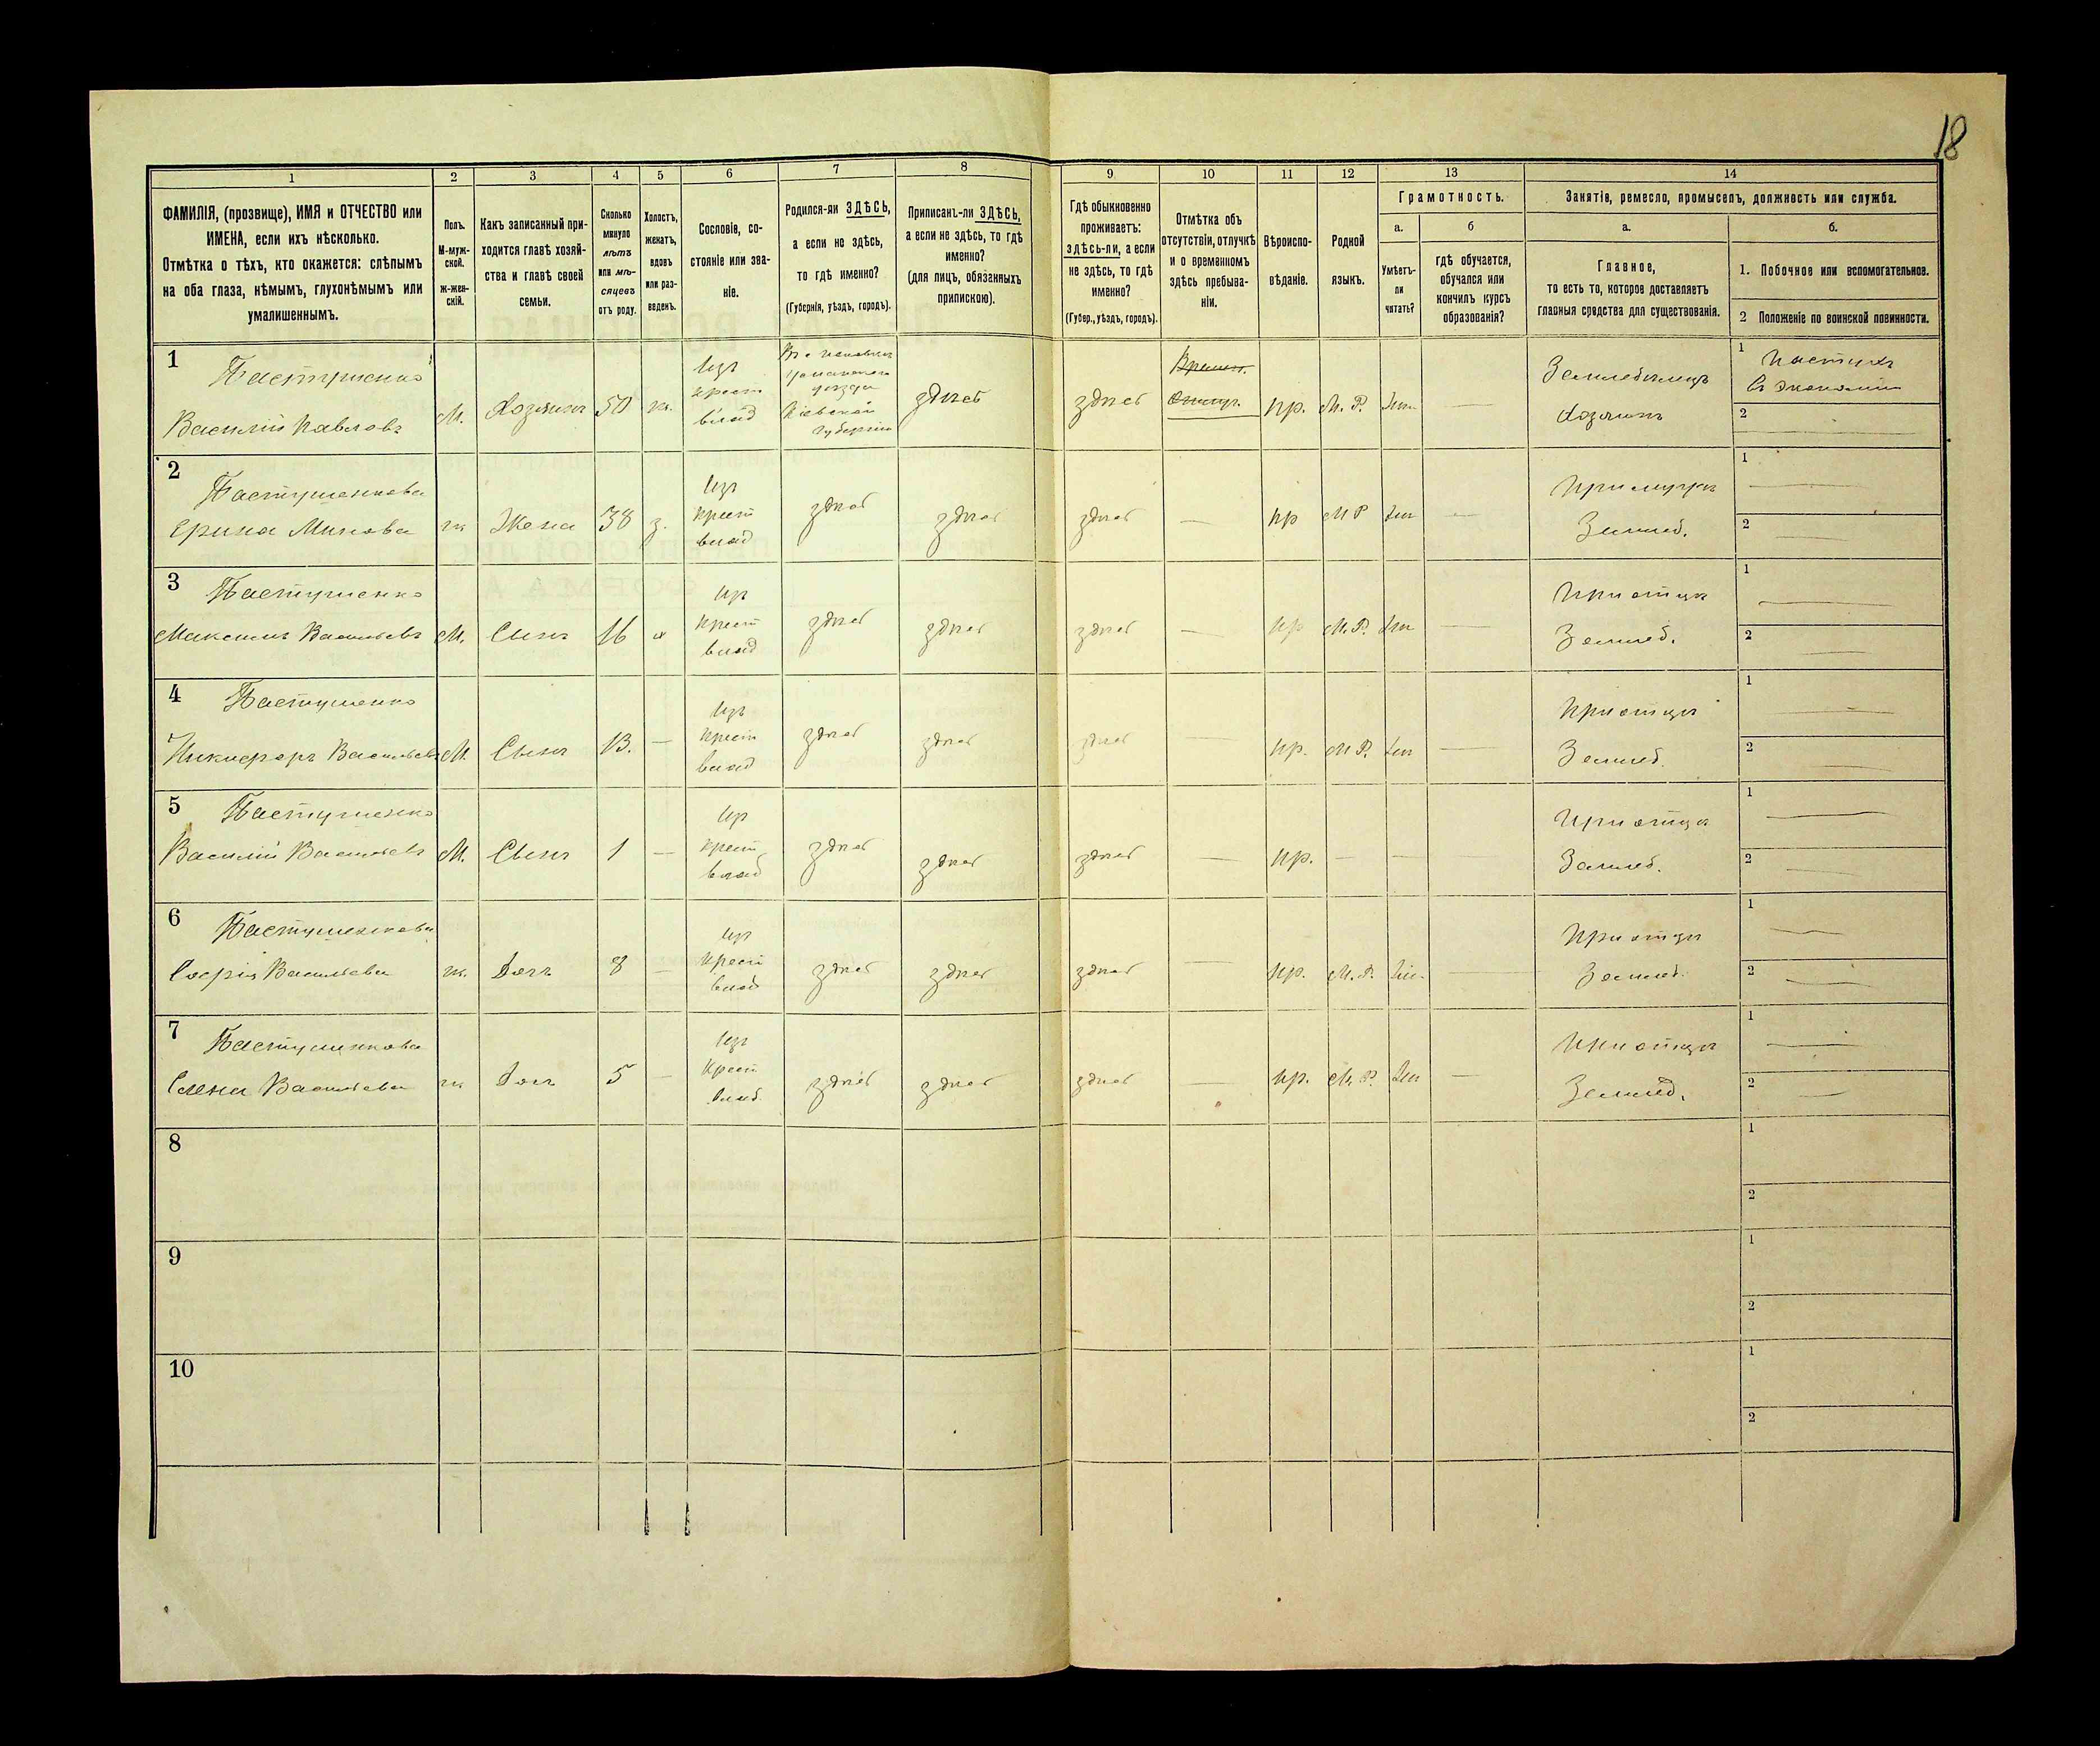 18
1 2 3 4 5 6 7 8 9 10 11 12 13 14
ФАМИЛІЯ, (прозвище), ИМЯ и ОТЧЕСТВО или
ИМЕНА, если ихъ нѣсколько.
Отмѣтка о тѣхъ, кто окажется: слѣпымъ
на оба глаза, нѣмымъ, глухонѣмымъ или
умалишеннымъ.
Полъ.
М-муж-
ской.
Ж-жен-
скій.
Какъ записанный при-
ходится главѣ хозяй-
ства и главѣ своей
семьи.
Сколько
минуло
лѣтъ
или мѣ-
сяцевъ
отъ роду.
Холостъ,
женатъ,
вдовъ
или раз-
веденъ.
Сословіе, со-
стояніе или зва-
ніе.
Родился-ли ЗДѢСЬ,
а если не здѣсь,
то гдѣ именно?
(Губернія, уѣздъ, городъ).
Приписанъ-ли ЗДѢСЬ,
а если не здѣсь, то гдѣ
именно?
(для лицъ, обязанныхъ
припискою).
Гдѣ обыкновенно
проживаетъ:
здѣсь-ли, а если
не здѣсь, то гдѣ
именно?
(Губер., уѣздъ, городъ).
Отмѣтка объ
отсутствіи, отлучкѣ
и о временномъ
здѣсь пребыва-
ніи.
Вѣроиспо-
вѣданіе.
Родной
языкъ.
Грамотность.
а.
Умѣетъ-
ли
читать?
б
гдѣ обучается,
обучался или
кончилъ курсъ
образованія?
Занятіе, ремесло, промыселъ, должность или служба.
а.
Главное,
то есть то, которое доставляетъ
главныя средства для существованія.
б.
1. Побочное или вспомогательное.
2 Положеніе по воинской повинности.
1
Пастушенко
Василій Павловъ
М. Хозяинъ 50 ж.
Изъ
крест
влад
Уманскаго
уѣзда
Кіевской
губерніи
здѣсь
здѣсь
Времен.
пр. М. Р.
Земледѣлецъ
Хозяинъ
1 Пастухъ
въ экономіи
2
2
Пастушенкова
Ерина Минова
ж Жена 38 з.
Изъ
крест
влад
здѣсь здѣсь здѣсь — пр М Р —
При мужѣ
Землед.
1
2
3
Пастушенко
Максимъ Васильевъ
М. Сынъ 16 х
Изъ
крест
влад
здѣсь здѣсь здѣсь — пр М. Р. —
При отцѣ
Землед.
1
2
4
Пастушенко
Никифоръ Васильевъ
М. Сынъ 13. —
Изъ
крест
влад
здѣсь здѣсь здѣсь — пр. М Р. —
При отцѣ
Землед.
1
2
5
Пастушенко
Василій Васильевъ
М. Сынъ 1 —
Изъ
крест
влад
здѣсь здѣсь здѣсь — пр. — —
При отцѣ
Землед.
1
2
6
Пастушенкова
Софія Васильева
ж. Дочь 8 —
Изъ
крест
влад
здѣсь здѣсь здѣсь — пр. М. Р. —
При отцѣ
Землед.
1
2
7
Пастушенкова
Елена Васильева
ж Дочь 5 —
Изъ
крест
влад.
здѣсь здѣсь здѣсь — пр. М. Р. —
При отцѣ
Землед.
1
2
8
1
2
9
1
2
10
1
2